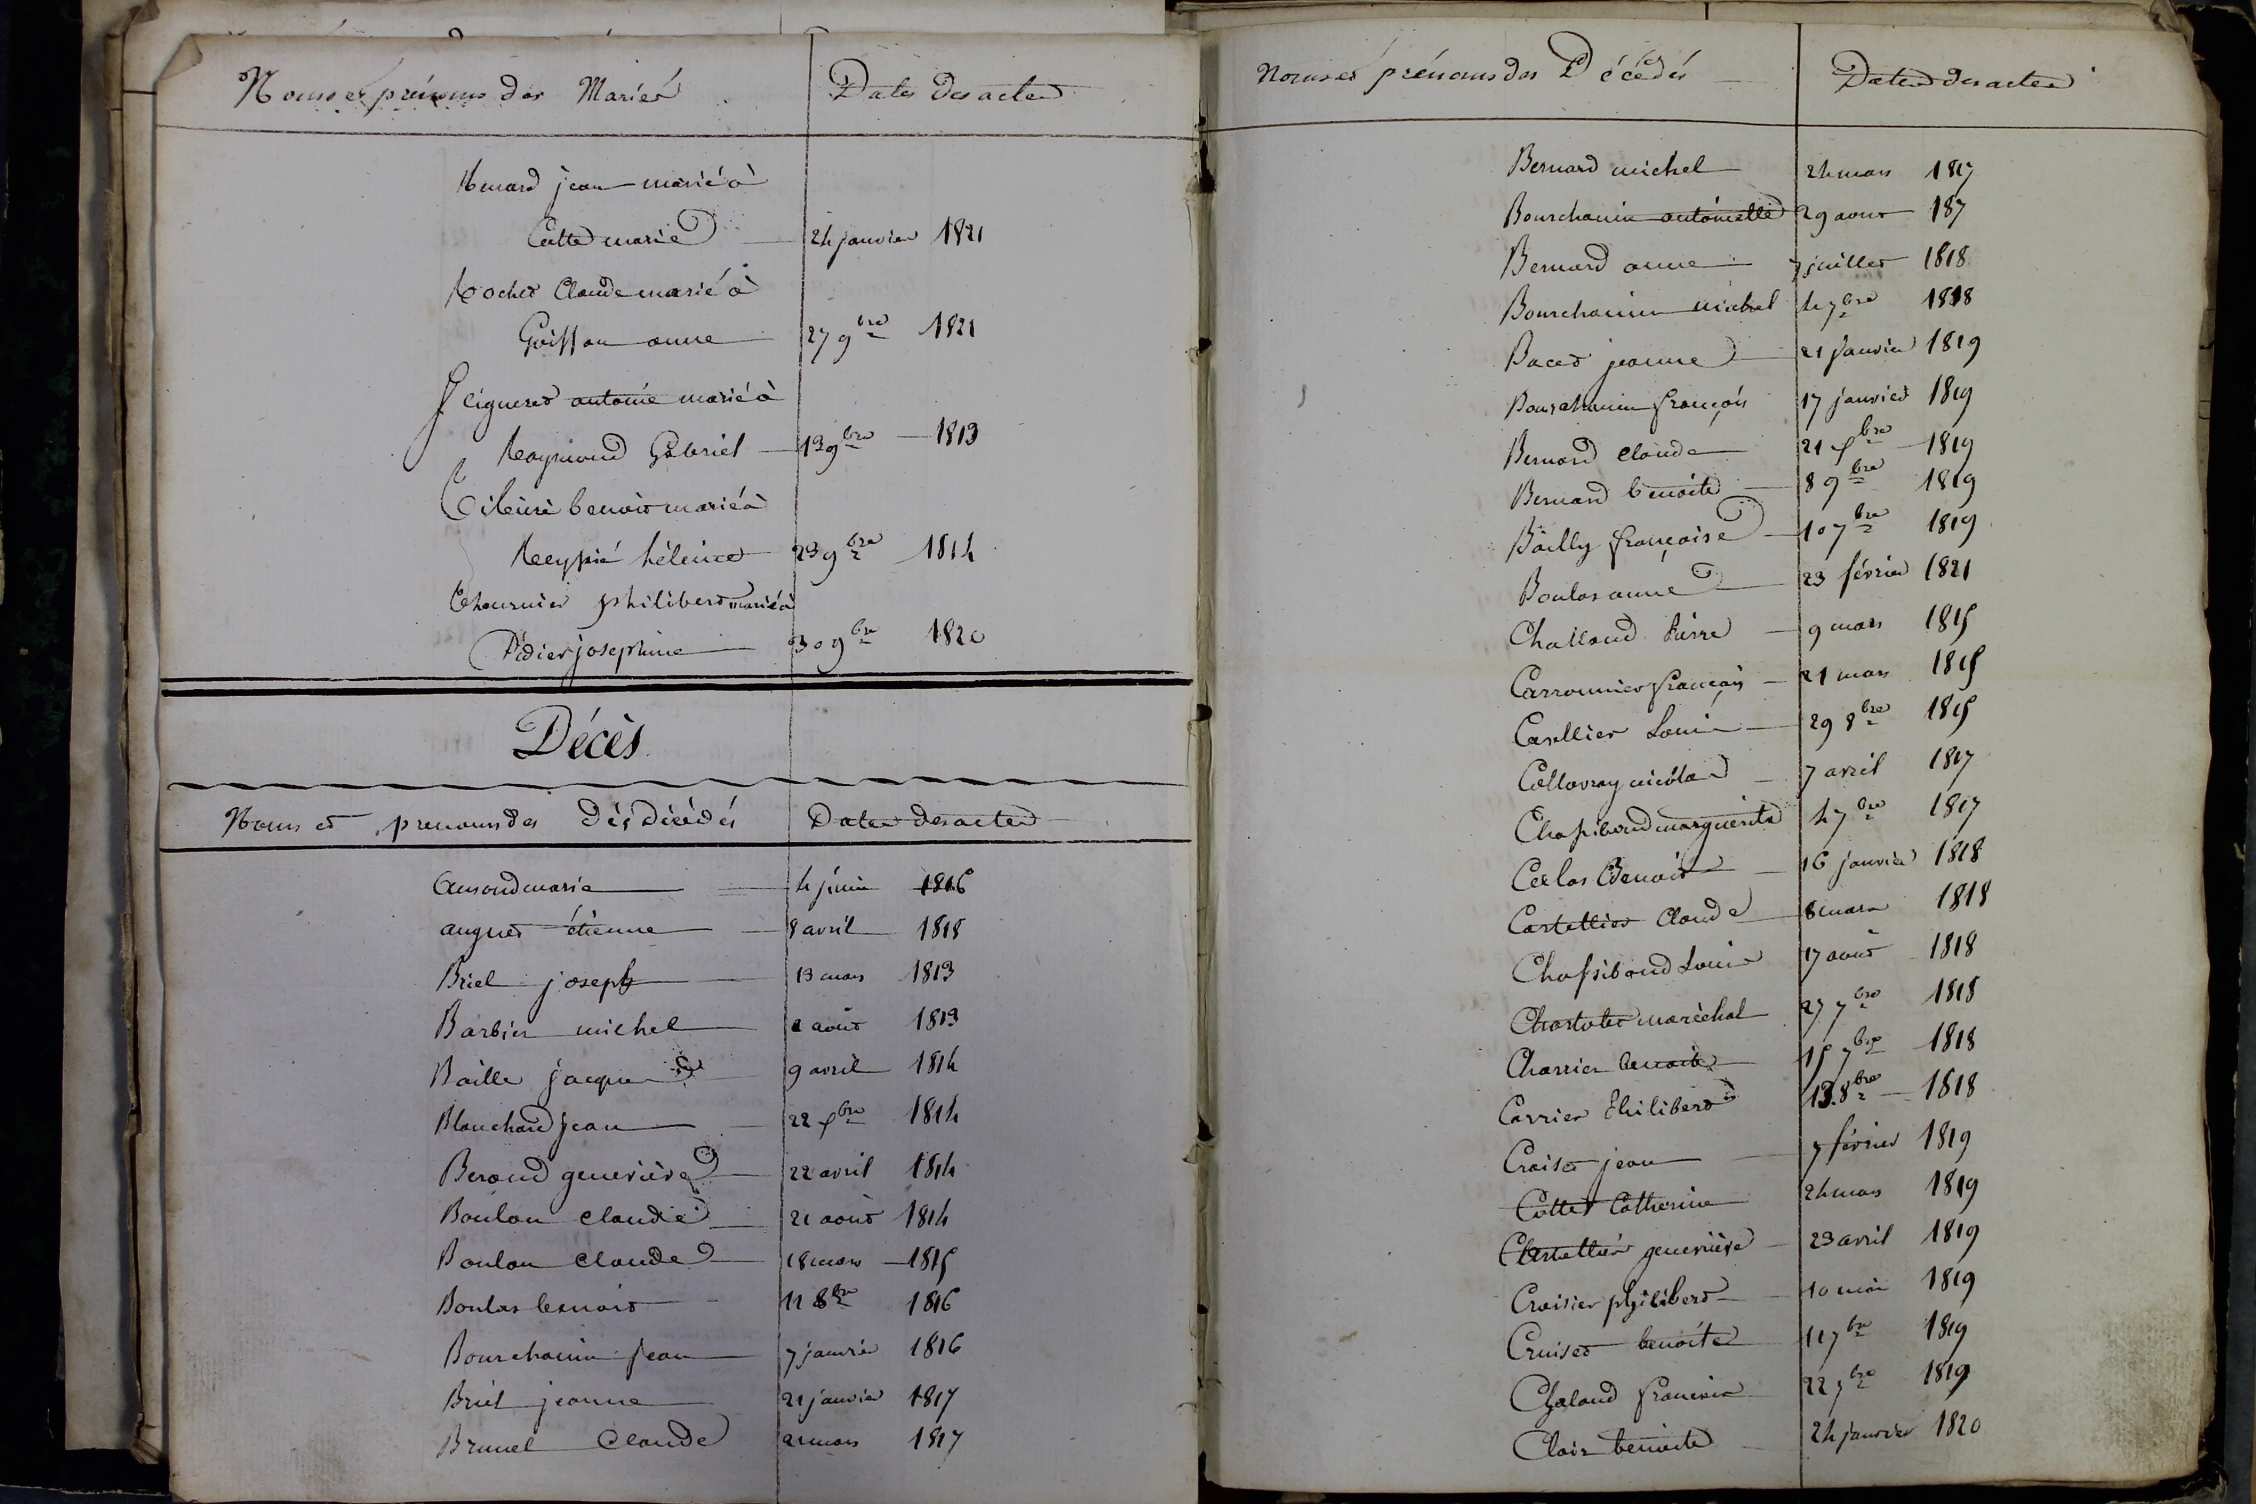 Noms et prénoms des Mariés Dates des actes
Renard jean marié à
Cotte marie 24 janvier 1821
Rochet Claude marié à
Goiffon anne 27 9bre 1821
Seigneret antoine marié à
Raymond Gabriel 13 9bre 1813
benoit marié à
Reypié hélène 23 9bre 1814
Thournier philibert marié à
Didier josephine 30 9bre 1820
Décès
Noms et prenoms des Dés Décédés Dates des actes
marie 4 juin 1816
auguet étienne 8 avril 1818
Briel joseph 13 mars 1813
Barbier michel 2 août 1813
Baille jacques 9 avril 1814
Blanchard jean 22 1814
Beroud genevière 22 avril 1814
Boulon claude 21 août 1814
Boulon claude 18 mars 1815
Boulas benoit 11 8bre 1816
Bourchanin jean 7 janvier 1816
Briel jeanne 21 janvier 1817
Brunel Claude 21 mars 1817
Noms et prénoms des Décédés Dates des actes
Bernard michel 24 mars 1817
Bourchanin antoinette 29 aout 187
Bernard anne 7 juillet 1818
Bourchanin michel 4 7bre 1818
Bacet jeanne 21 janvier 1819
Bourchanin françois 17 janvier 1819
Bernard claude 21 1819
Bernard benoite 8 9bre 1819
Bailly françoise 10 7bre 1819
Boulas anne 23 février 1821
Challand Pierre 9 mars 1815
Carronnier françois 21 mars 1815
Louis 29 8bre 1815
Collovray nicolas 7 avril 1817
Chassiboud marguerite 4 7bre 1817
Benoit 16 janvier 1818
Cartellier Claude 8 mars 1818
Chassiboud Louis 17 août 1818
maréchal 27 7bre 1818
Charrier benoite 15 7bre 1818
Carrier Philibert 13 8bre 1818
Croiset jean 7 février 1819
Cottet Catherine 24 mars 1819
genevière 23 avril 1819
Croisier philibert 10 mai 1819
Cruiset benoite 11 7bre 1819
Chaland francois 22 1819
Clair benoite 24 janvier 1820